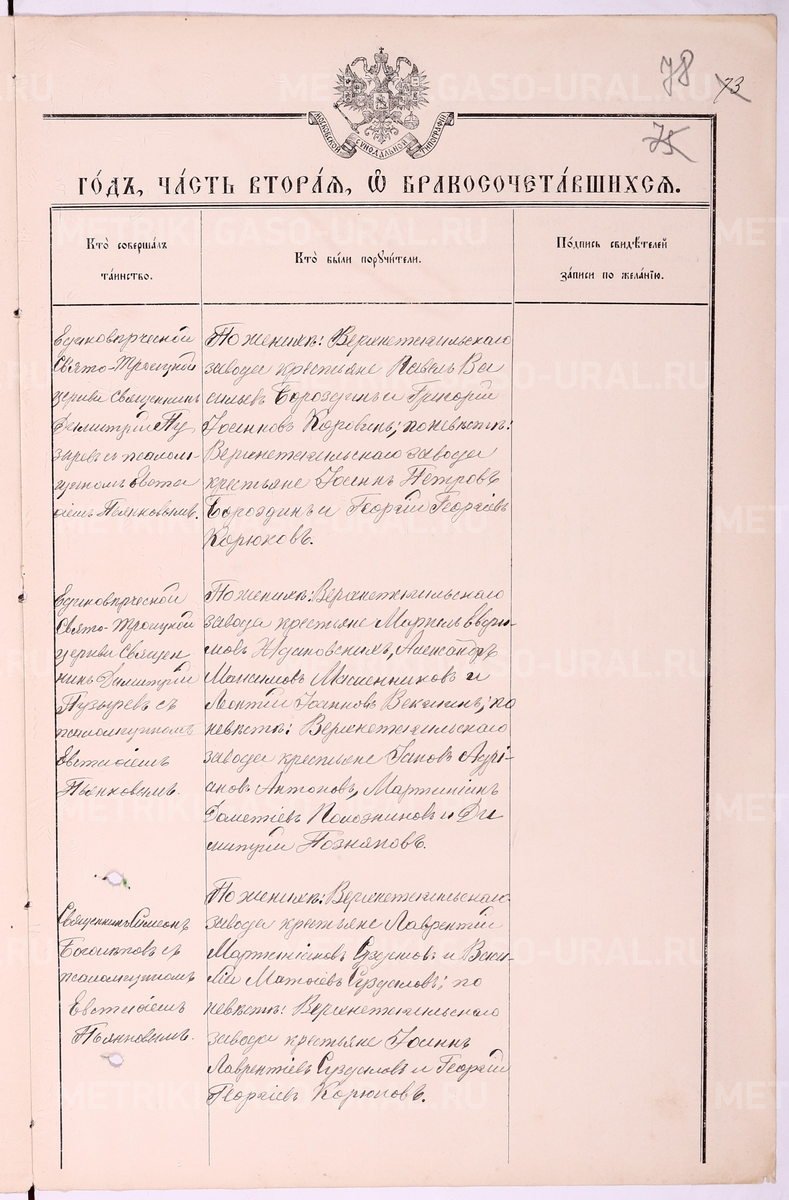 78
73
75
МОСКОВСКОЙ СѴНОДАЛЬНОЙ ТИПОГРАФІИ
ГО́ДЪ, ЧА́СТЬ ВТОРА́Ѧ, Ѡ҆ БРАКОСОЧЕТА́ВШИХСѦ.
Кто̀ соверша́лъ
та́инство.
Кто̀ бы́ли порꙋчи́тели.
По́дпись свидѣ́телей
за́писи по жела́нїю.
Единовѣрческой
Свято-Троицкой
церкви Священникъ
Димитрій Пу
зыревъ съ псалом-
щикомъ Евста
ѳіемъ Пьянковымъ.
По женихѣ: Верхнетагильскаго
завода крестьяне Павелъ Ва
сильевъ Бороздинъ и Григорій
Іоанновъ Коровинъ; по невѣстѣ:
Верхнетагильскаго завода
крестьяне Іоаннъ Петровъ
Бороздинъ и Георгій Георгіевъ
Корюковъ.
Единовѣрческой
Свято-Троицкой
церкви Священ
никъ Димитрій
Пузыревъ съ
псаломщикомъ
Евстаѳіемъ
Пьянковымъ.
По женихѣ: Верхнетагильскаго
завода крестьяне
Александръ
Максимовъ Масленниковъ и
Леонтій Іоанновъ Векшинъ; по
невѣстѣ: Верхнетагильскаго
завода крестьяне Іаковъ Адрі-
ановъ Антоновъ, Мартиніанъ
и Ди
митрій Позняковъ.
Священникъ Симеонъ
съ
псаломщикомъ
Евстаѳіемъ
Пьянковымъ.
По женихѣ: Верхнетагильскаго
завода крестьяне Лаврентій
Мартиніановъ и
Суздаловъ; по
невѣстѣ: Верхнетагильскаго
завода крестьяне Іоаннъ
Лаврентіевъ Суздаловъ и Георгій
Георгіевъ Корюковъ.
METRIKI.GASO-URAL.RU